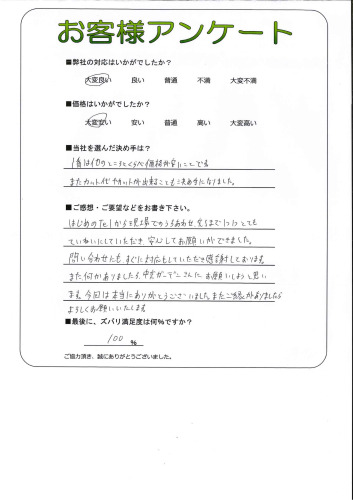 お客様アンケート
■弊社の対応はいかがでしたか？
大変良い 良い 普通 不満 大変不満
■価格はいかがでしたか？
大変安い 安い 普通 高い 大変高い
■当社を選んだ決め手は？
1番は他のところとくらべ価格が安いことです
またカット代やカットが出来ることも決め手になりました。
■ご感想・ご要望などをお書き下さい。
はじめのTelから現場でのうちあわせ
ていねいにしていただき、安心してお願いができました。
問い合わせにも、すぐに対応もしていただき感謝しております。
また何かありましたら、中央ガーデンさんにお願いしようと思い
ます。今回は本当にありがとうございました。またご縁がありましたら
よろしくお願いいたします
■最後に、ズバリ満足度は何％ですか？
100 ％
ご協力頂き、誠にありがとうございました。